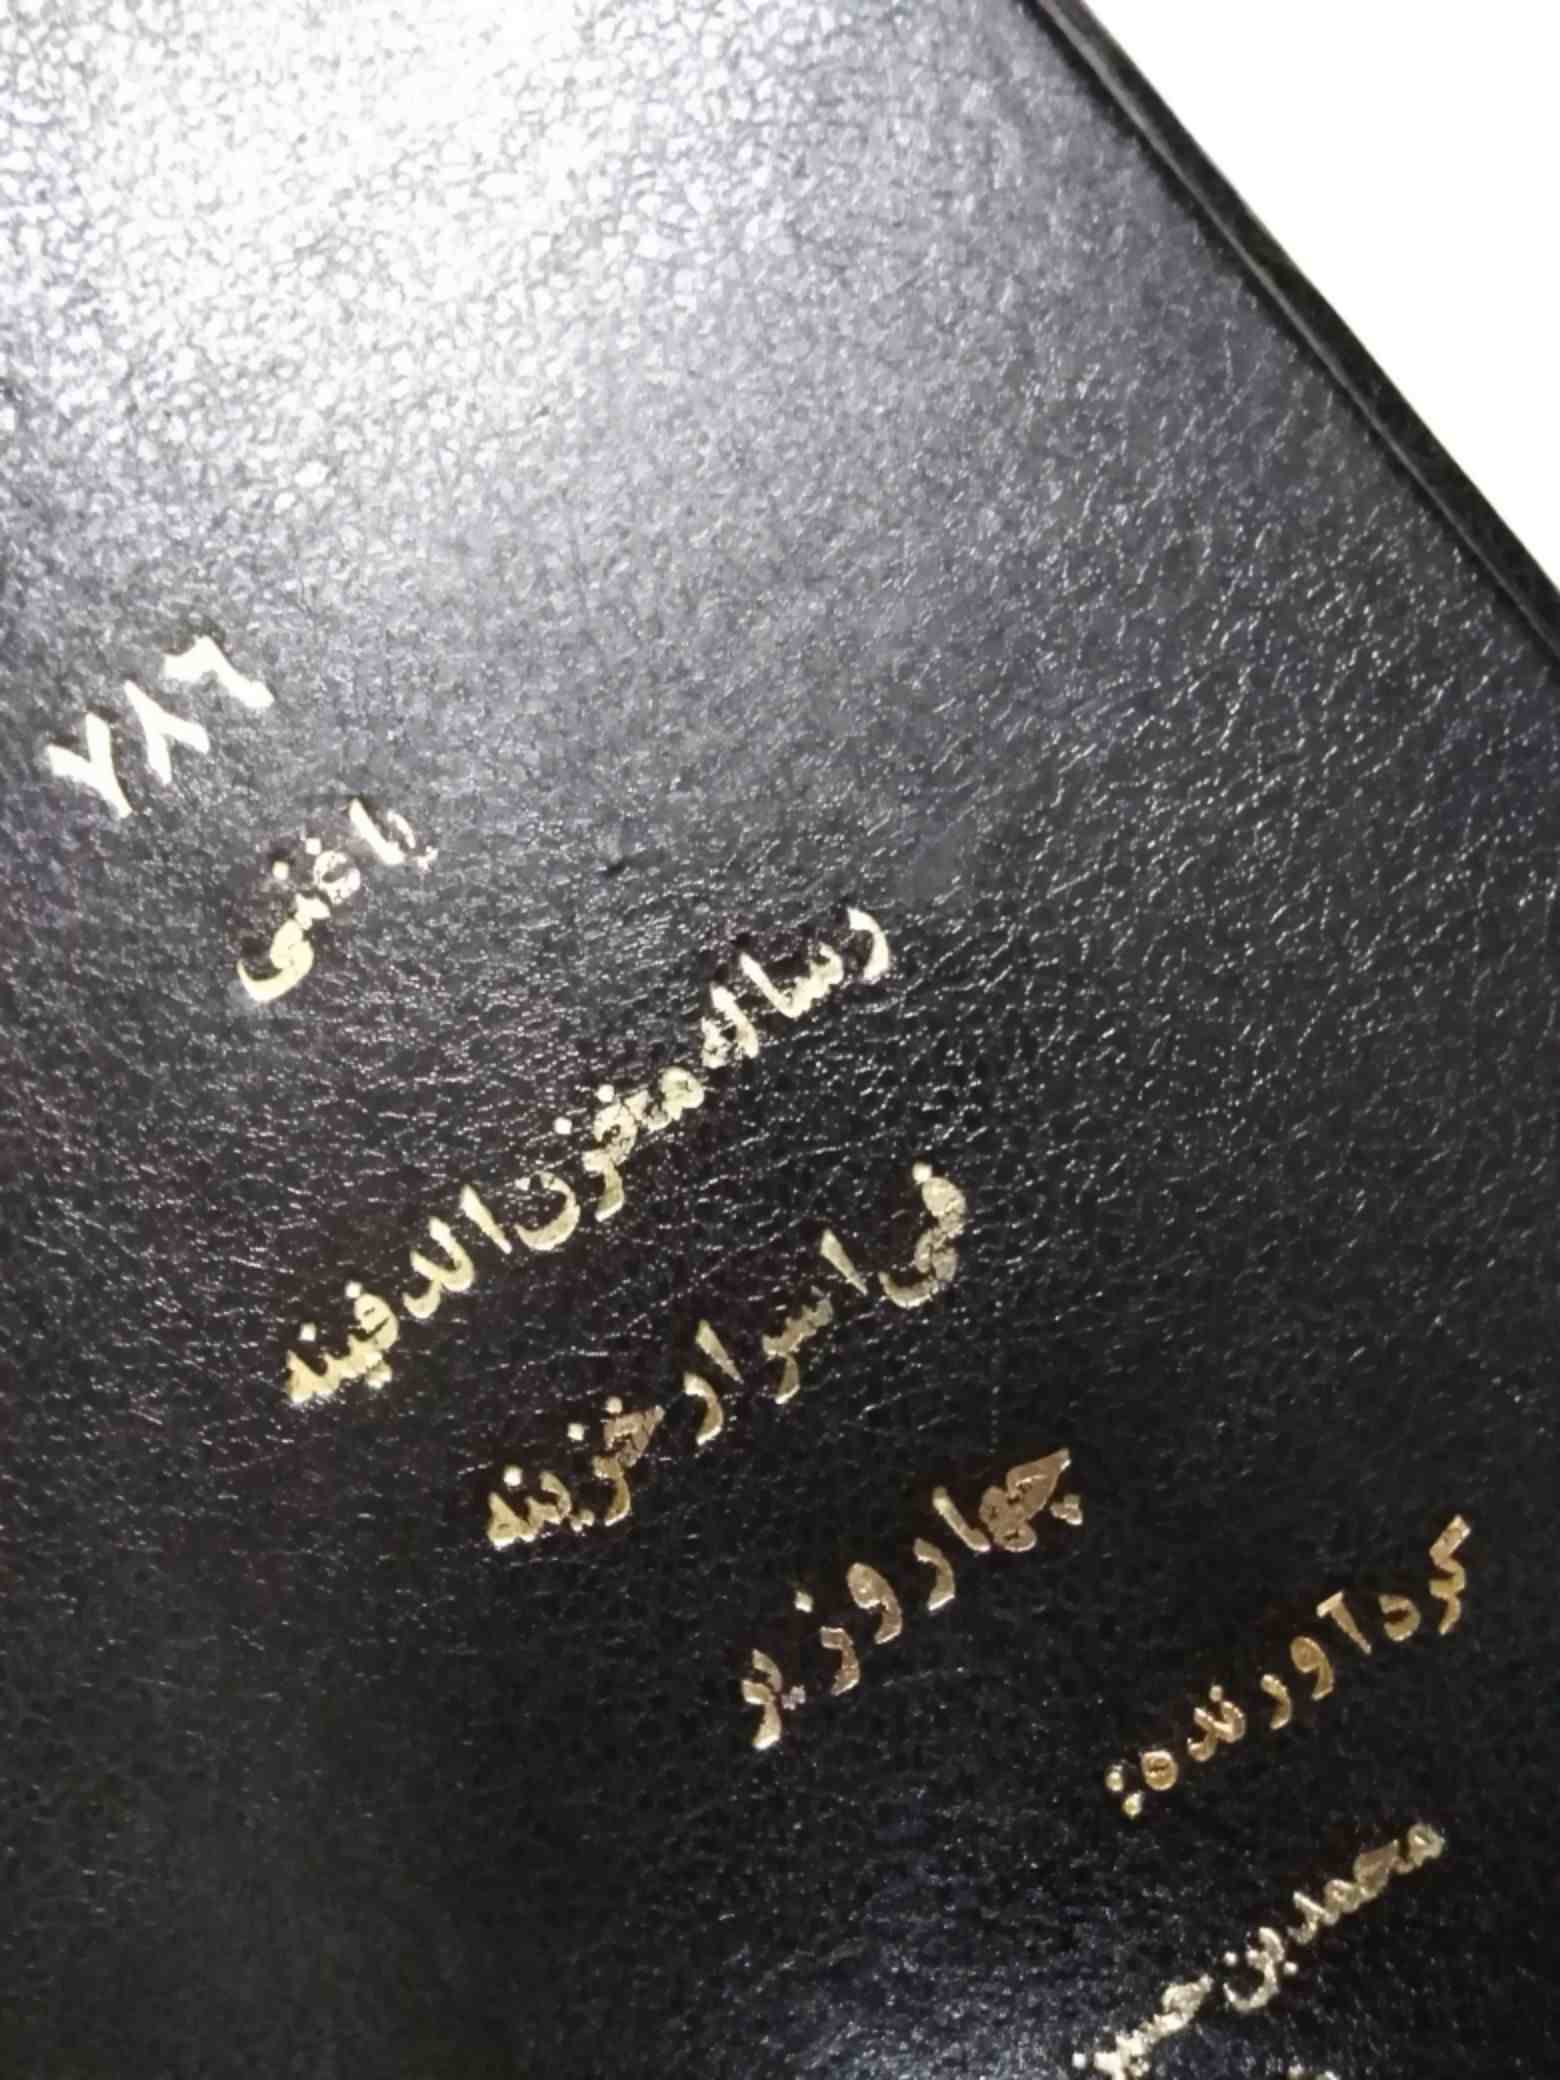 ٧٨٦
یا غنی
رساله مخزن الدفینه
فی اسرار خزینه
چهار وزیر
گردآورنده:
محمد بن